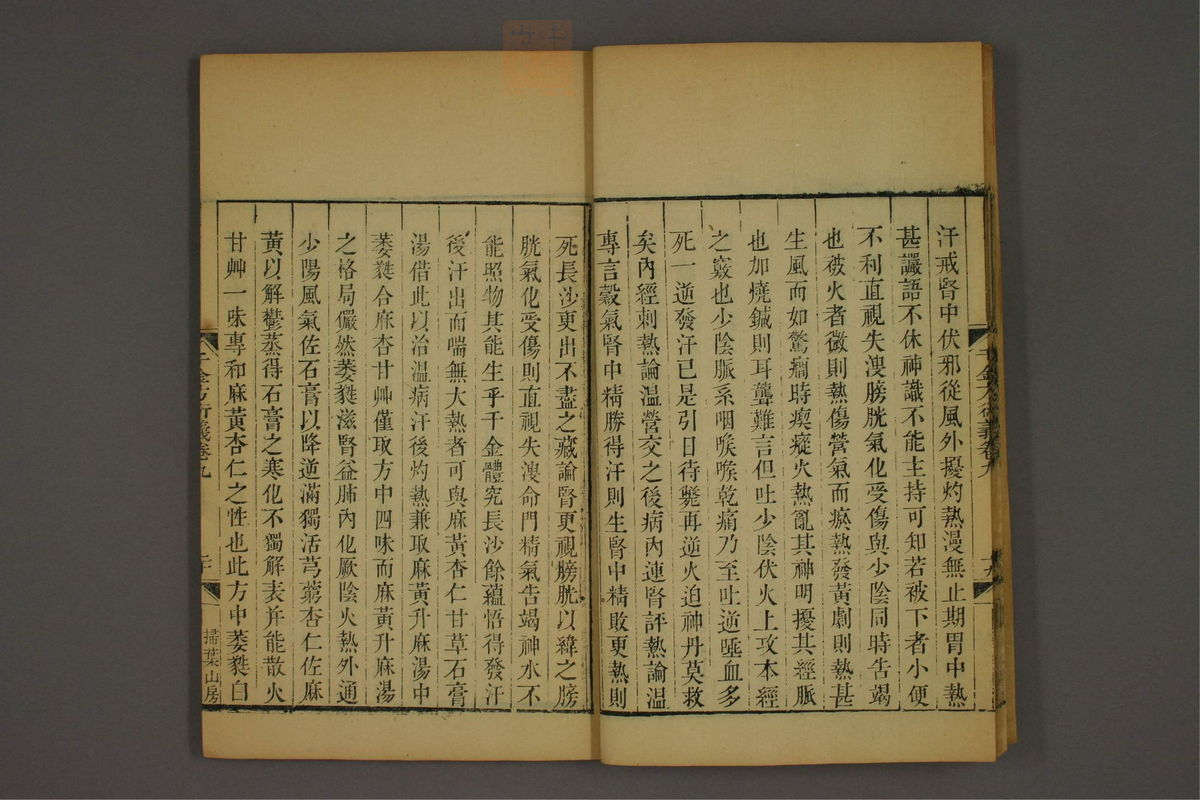 汗戒腎中伏邪從風外擾灼熱漫無止期胃中熱
甚讝語不休神識不能主持可知若被下者小便
不利直視失溲膀胱氣化受傷與少陰同時告竭
也被火者微則熱傷營氣而瘀熱發黃劇則熱甚
生風而如驚癇時瘈瘲火熱亂其神明擾其經脈
也加燒鍼則耳聾難言但吐少陰伏火上攻本經
之竅也少陰脈系咽喉喉乾痛乃至吐逆唾血多
死一逆發汗已是引日待斃再逆火迫神丹莫救
矣內經刺熱論溫營交之後病內連腎評熱論溫
專言穀氣腎中精勝得汗則生腎中精敗更熱則
千金方衍義卷九
十九
死長沙更出不盡之藏論腎更視膀胱以緯之膀
胱氣化受傷則直視失溲命門精氣告竭神水不
能照物其能生乎千金體究長沙餘蘊悟得發汗
後汗出而喘無大熱者可與麻黃杏仁甘草石膏
湯借此以治溫病汗後灼熱兼取麻黃升麻湯中
萎蕤合麻杏甘艸僅取方中四味而麻黃升麻湯
之格局儼然萎蕤滋腎益肺內化厥陰火熱外通
少陽風氣佐石膏以降逆滿獨活芎藭杏仁佐麻
黃以解鬱蒸得石膏之寒化不獨解表并能散火
甘艸一味專和麻黃杏仁之性也此方中萎蕤白
千金方衍義卷九
二十
掃葉山房